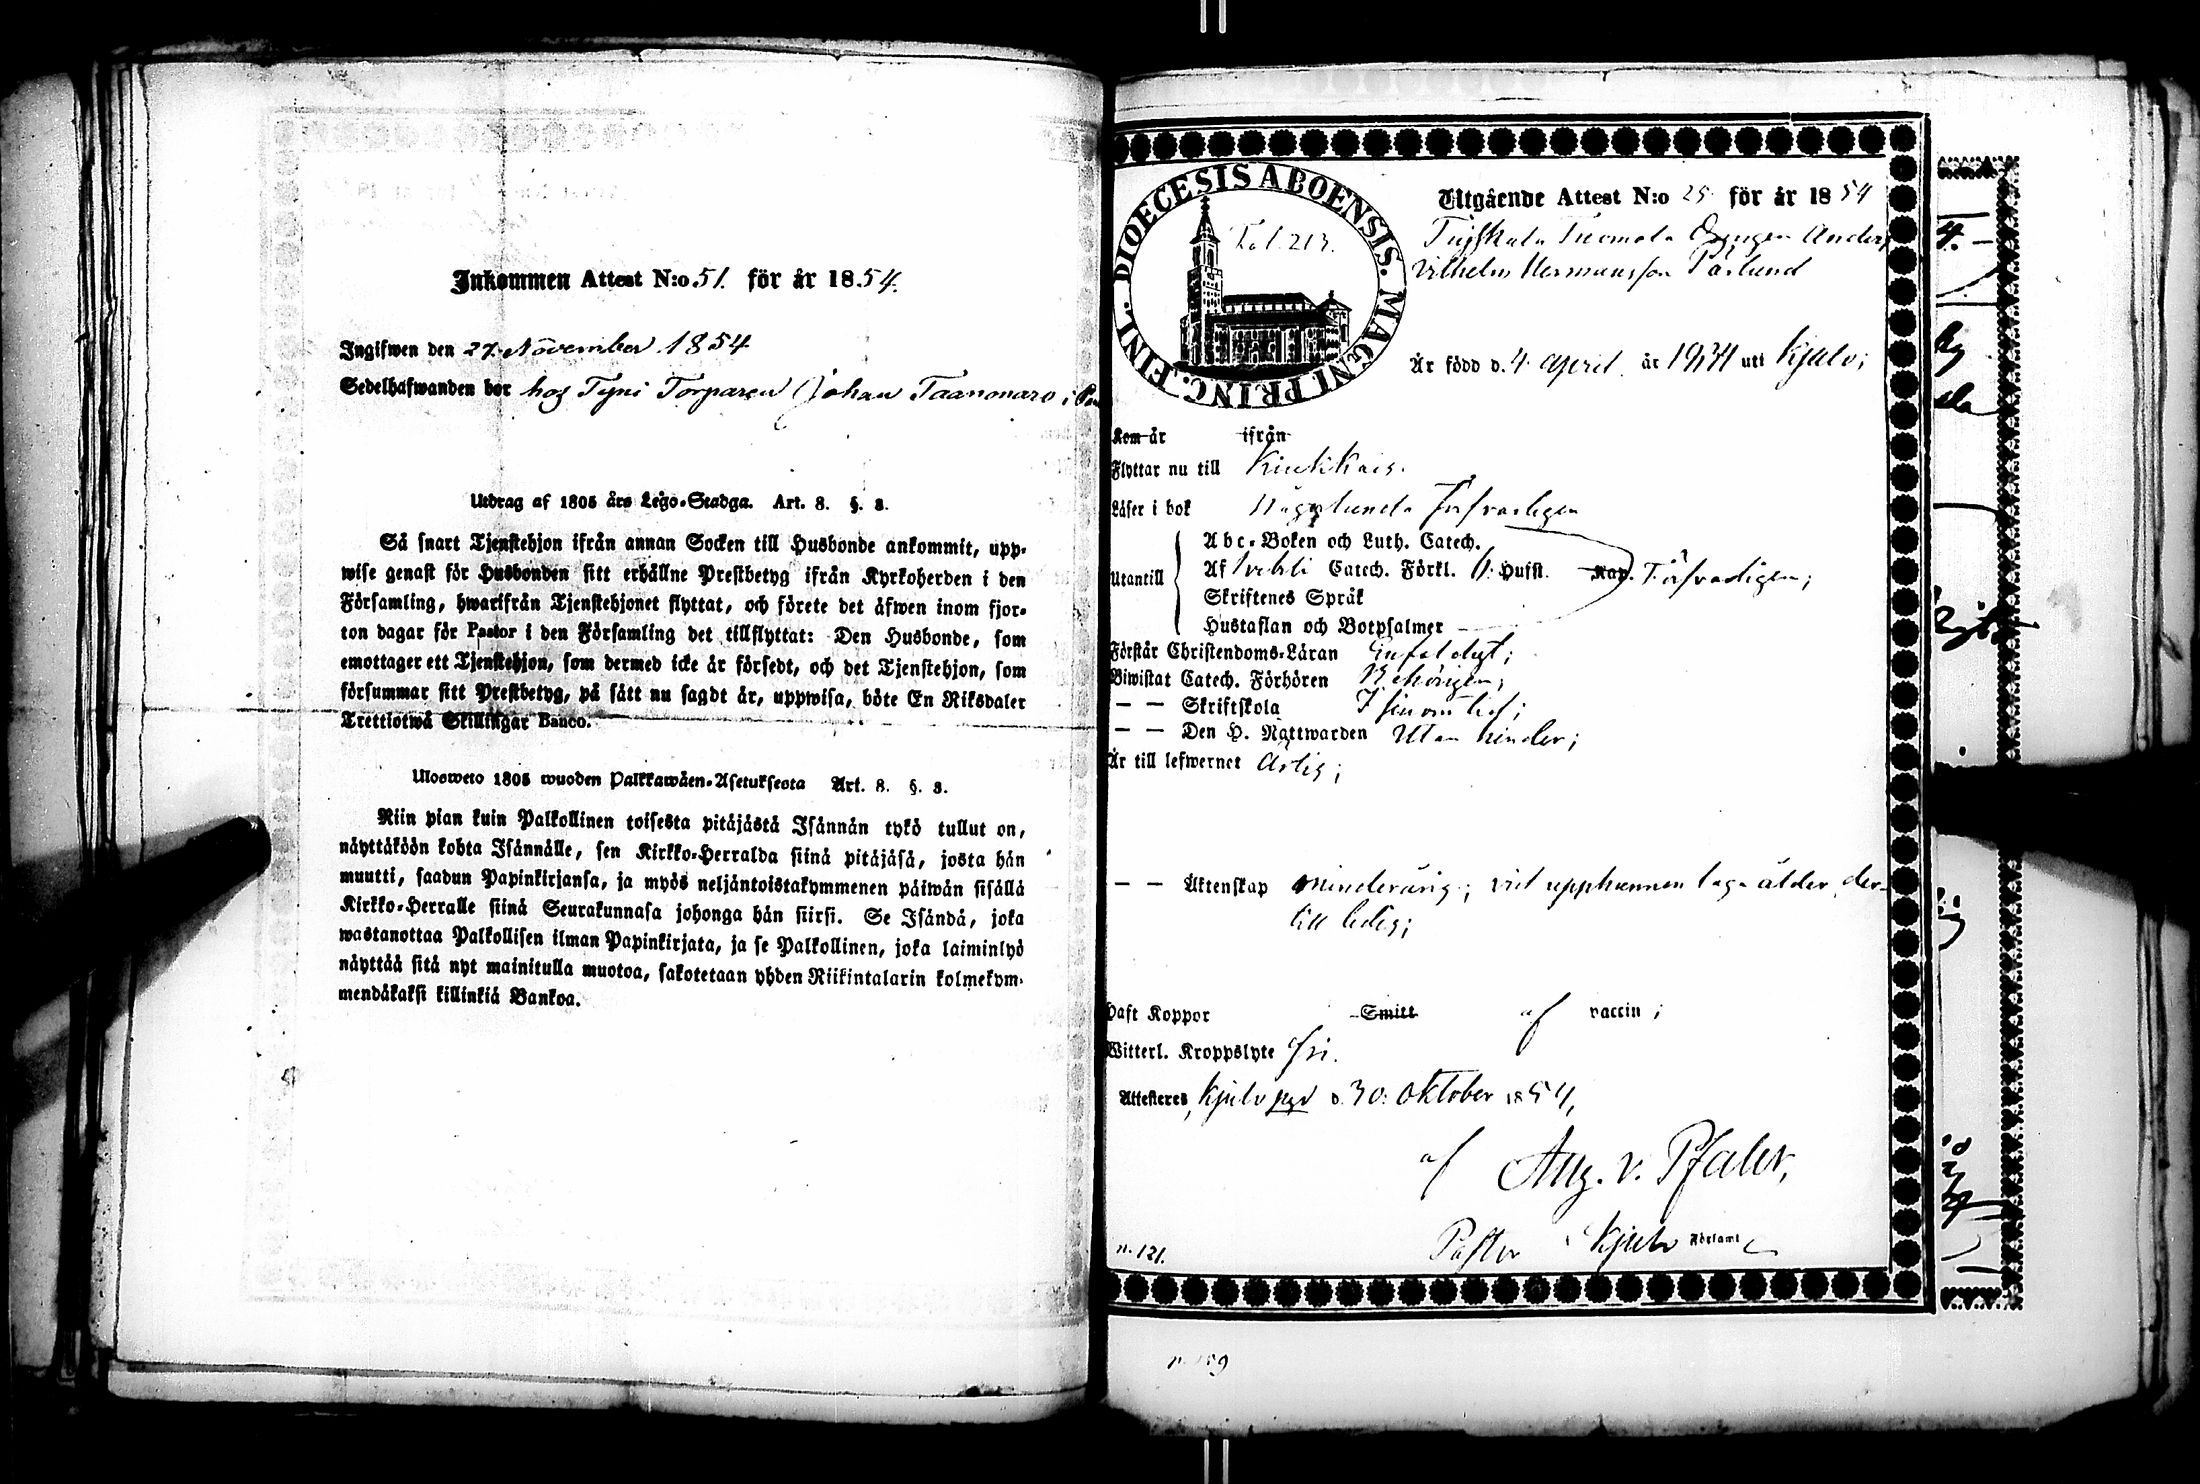 Inkommen Attest N:o 51. för år 1854.
Ingifwen den 27. November 1854
Sedelhafwanden bor hos Tyni Torparen Johan Taanonaro i
Utdrag af 1805 års Lego-Stadga. Art. 8. §. 3.
Så snart Tjenstehjon ifrån annan Socken till Husbonde ankommit, upp-
wise genast för Husbonden sitt erhållne Prestbetyg ifrån Kyrkoherden i den
Församling, hwarifrån Tjenstehjonet flyttat, och förete det äfwen inom fjor-
ton dagar för Pastor i den Församling det tillflyttat: Den Husbonde, som
emottager ett Tjenstehjon, som dermed icke är försedt, och det Tjenstehjon, som
försummar sitt Prestbetyg, på sätt nu sagdt är, uppwisa, böte En Riksdaler
Trettiotwå Skillingar Banco.
Ulosweto 1805 wuoden Palkkawäen-Asetuksesta Art. 8. §. 3.
Niin pian kuin Palkollinen toisesta pitäjästä Isännän tykö tullut on,
näyttäköön kohta Isännälle, sen Kirkko-Herralda siinä pitäjäsä, josta hän
muutti, saadun Papinkirjansa, ja myös neljäntoistakymmenen päiwän sisällä
Kirkko-Herralle siinä Seurakunnasa johonga hän siirsi. Se Isändä, joka
wastanottaa Palkollisen ilman Papinkirjata, ja se Palkollinen, joka laiminlyö
näyttää sitä nyt mainitulla muotoa, sakotetaan yhden Riikintalarin kolmekym-
mendäkaksi killinkiä Bankoa.
DIOECESIS ABOENSIS. MAGNI PRINC. FINL.
Fol. 213.
Utgående Attest N:o 25 för år 1854
Tuomola Drängen Anders
Vilhelm Hermansson Pärlund
Är född d. 4 April år 1834 uti Kjulo;
Kom år ifrån
Flyttar nu till Kiukkais.
Läser i bok Någorlunda Försvarligen
Abc-Boken och Luth. Catech.
Utantill Af Svebili Catech. Förkl. o. Husst. Kap. Försvarligen;
Skriftenes Språk
Hustaflan och Botpsalmer
Förstår Christendoms-Läran Enfaldigt;
Biwistat Catech. Förhören Behörigen;
— — Skriftskola I sin om tid;
— — Den H. Nattwarden Utan hinder;
Är till lefwernet Ärlig;
— — Äktenskap minderårig; vid upphunnen laga ålder der-
till ledig;
Haft Koppor Smitt af vaccin;
Witterl. Kroppslyte fri.
Attesteres, Kjulo pgd d. 30. Oktober 1854,
af Aug. v. Pfaler,
Pastor i Kjulo Församl
n. 121.